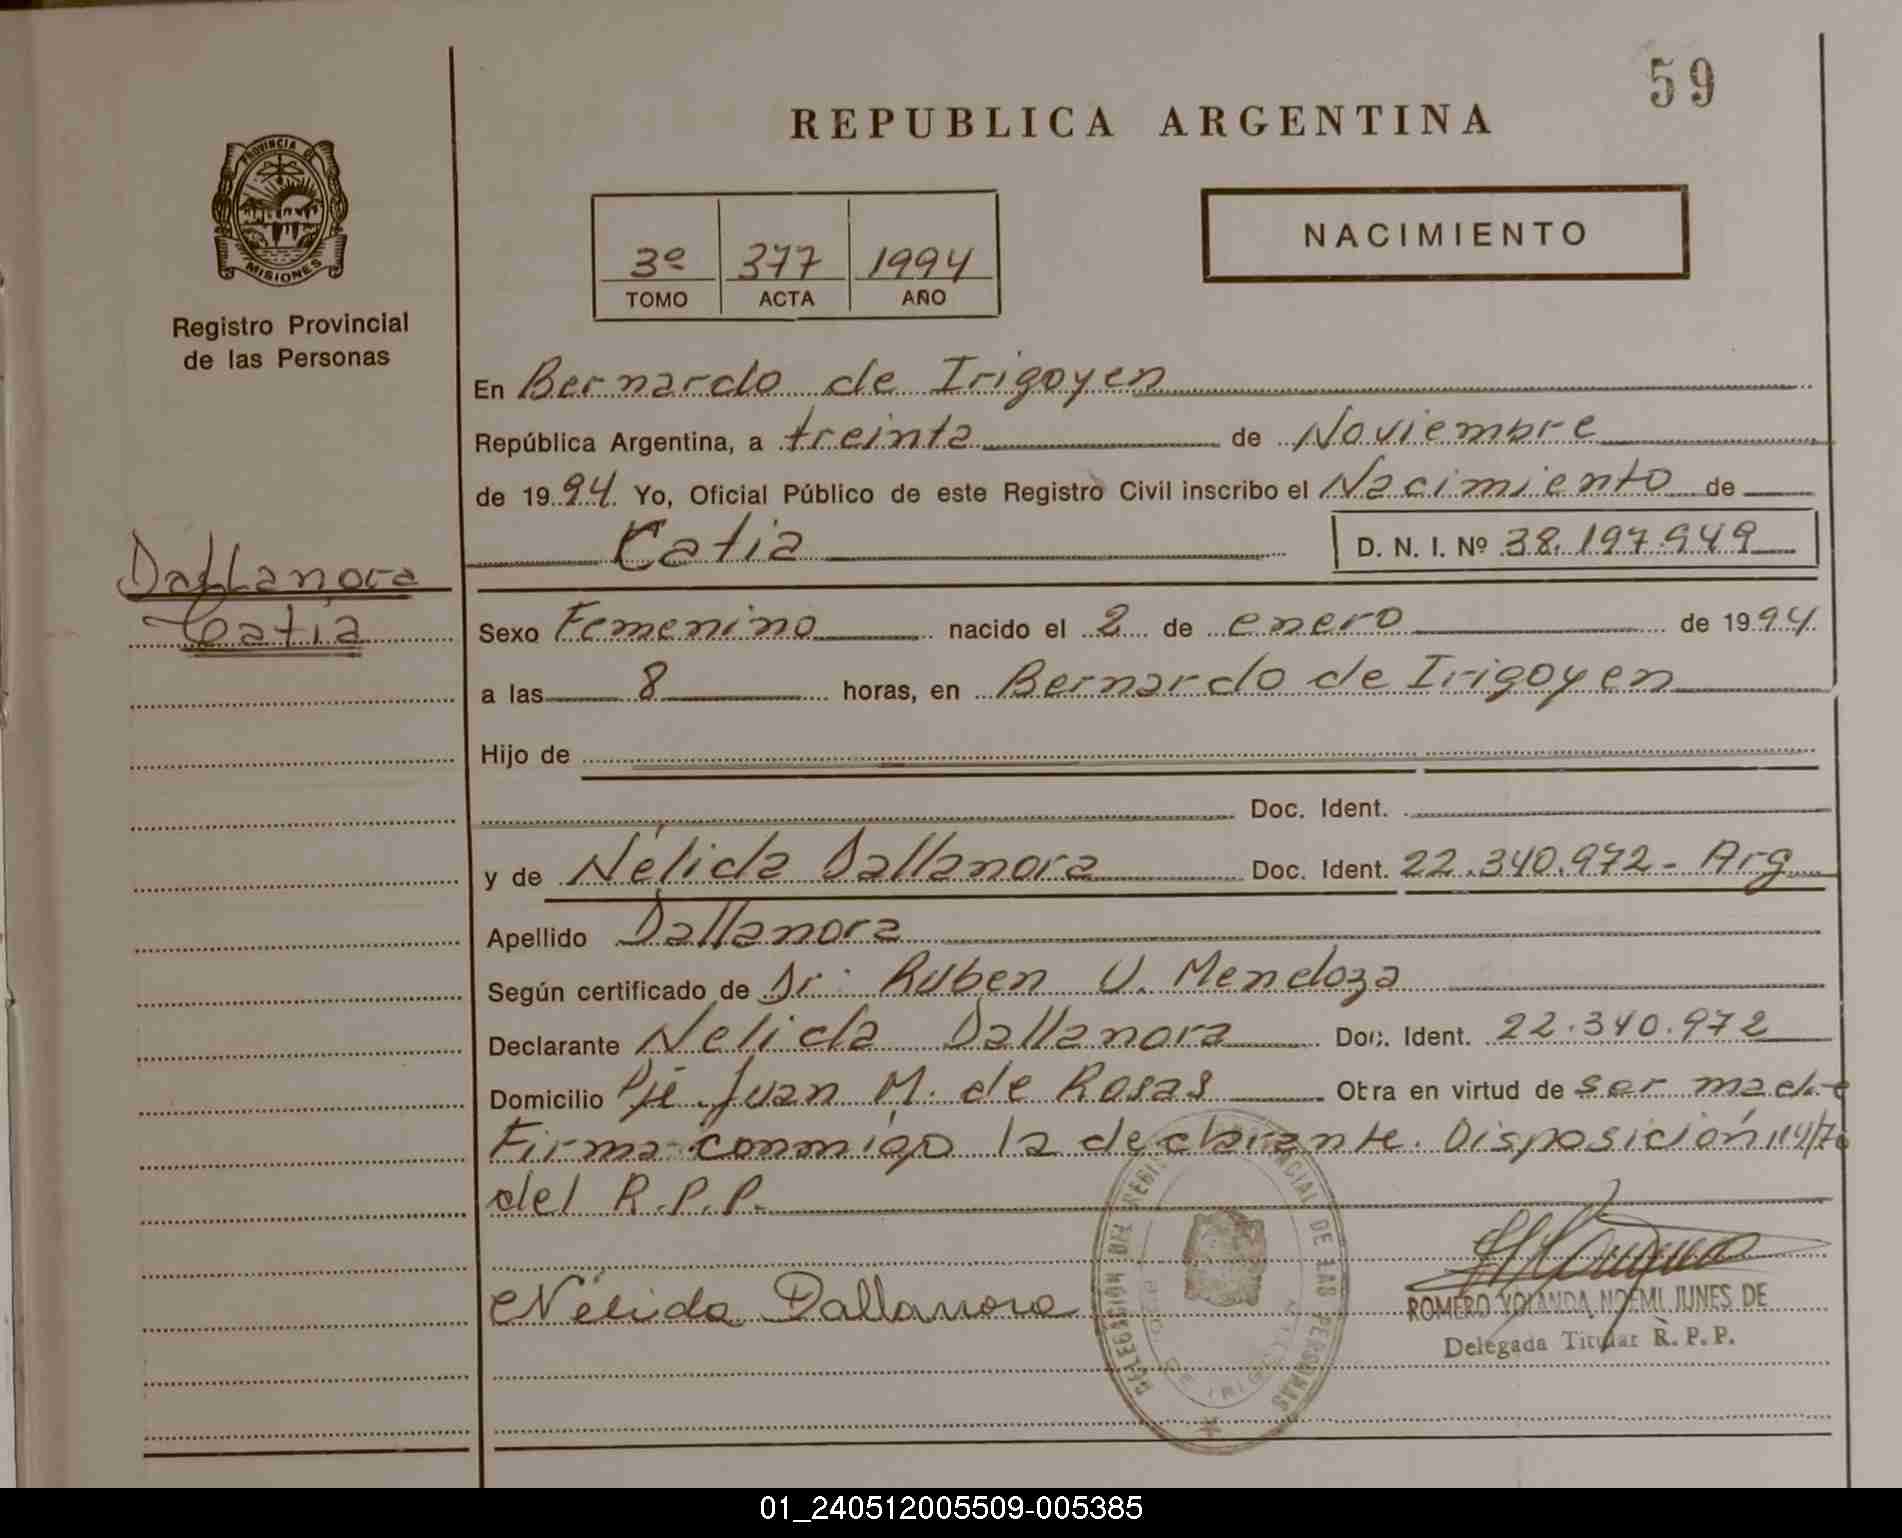 59
REPUBLICA ARGENTINA
PROVINCIA DE
MISIONES
Registro Provincial
de las Personas
3º 377 1994
TOMO ACTA AÑO
NACIMIENTO
En Bernardo de Irigoyen
República Argentina, a treinta de Noviembre
de 1994 Yo, Oficial Público de este Registro Civil inscribo el Nacimiento de
Catia D. N. I. Nº 38.197.949
Dallanora
Catia
Sexo Femenino nacido el 2 de enero de 1994
a las 8 horas, en Bernardo de Irigoyen
Hijo de
Doc. Ident.
y de Nélida Dallanora Doc. Ident. 22.340.972 - Arg
Apellido Dallanora
Según certificado de Dr: Ruben U. Mendoza
Declarante Nelida Dallanora Doc. Ident. 22.340.972
Domicilio Pje Juan M. de Rosas Otra en virtud de ser madre
Firma conmigo la declarante. Disposición 114/70
del R.P.P.
Nélida Dallanora
DELEGACION DEL REGISTRO PROVINCIAL DE LAS PERSONAS
ROMERO YOLANDA NOEMI JUNES DE
Delegada Titular R. P. P.
01_240512005509-005385